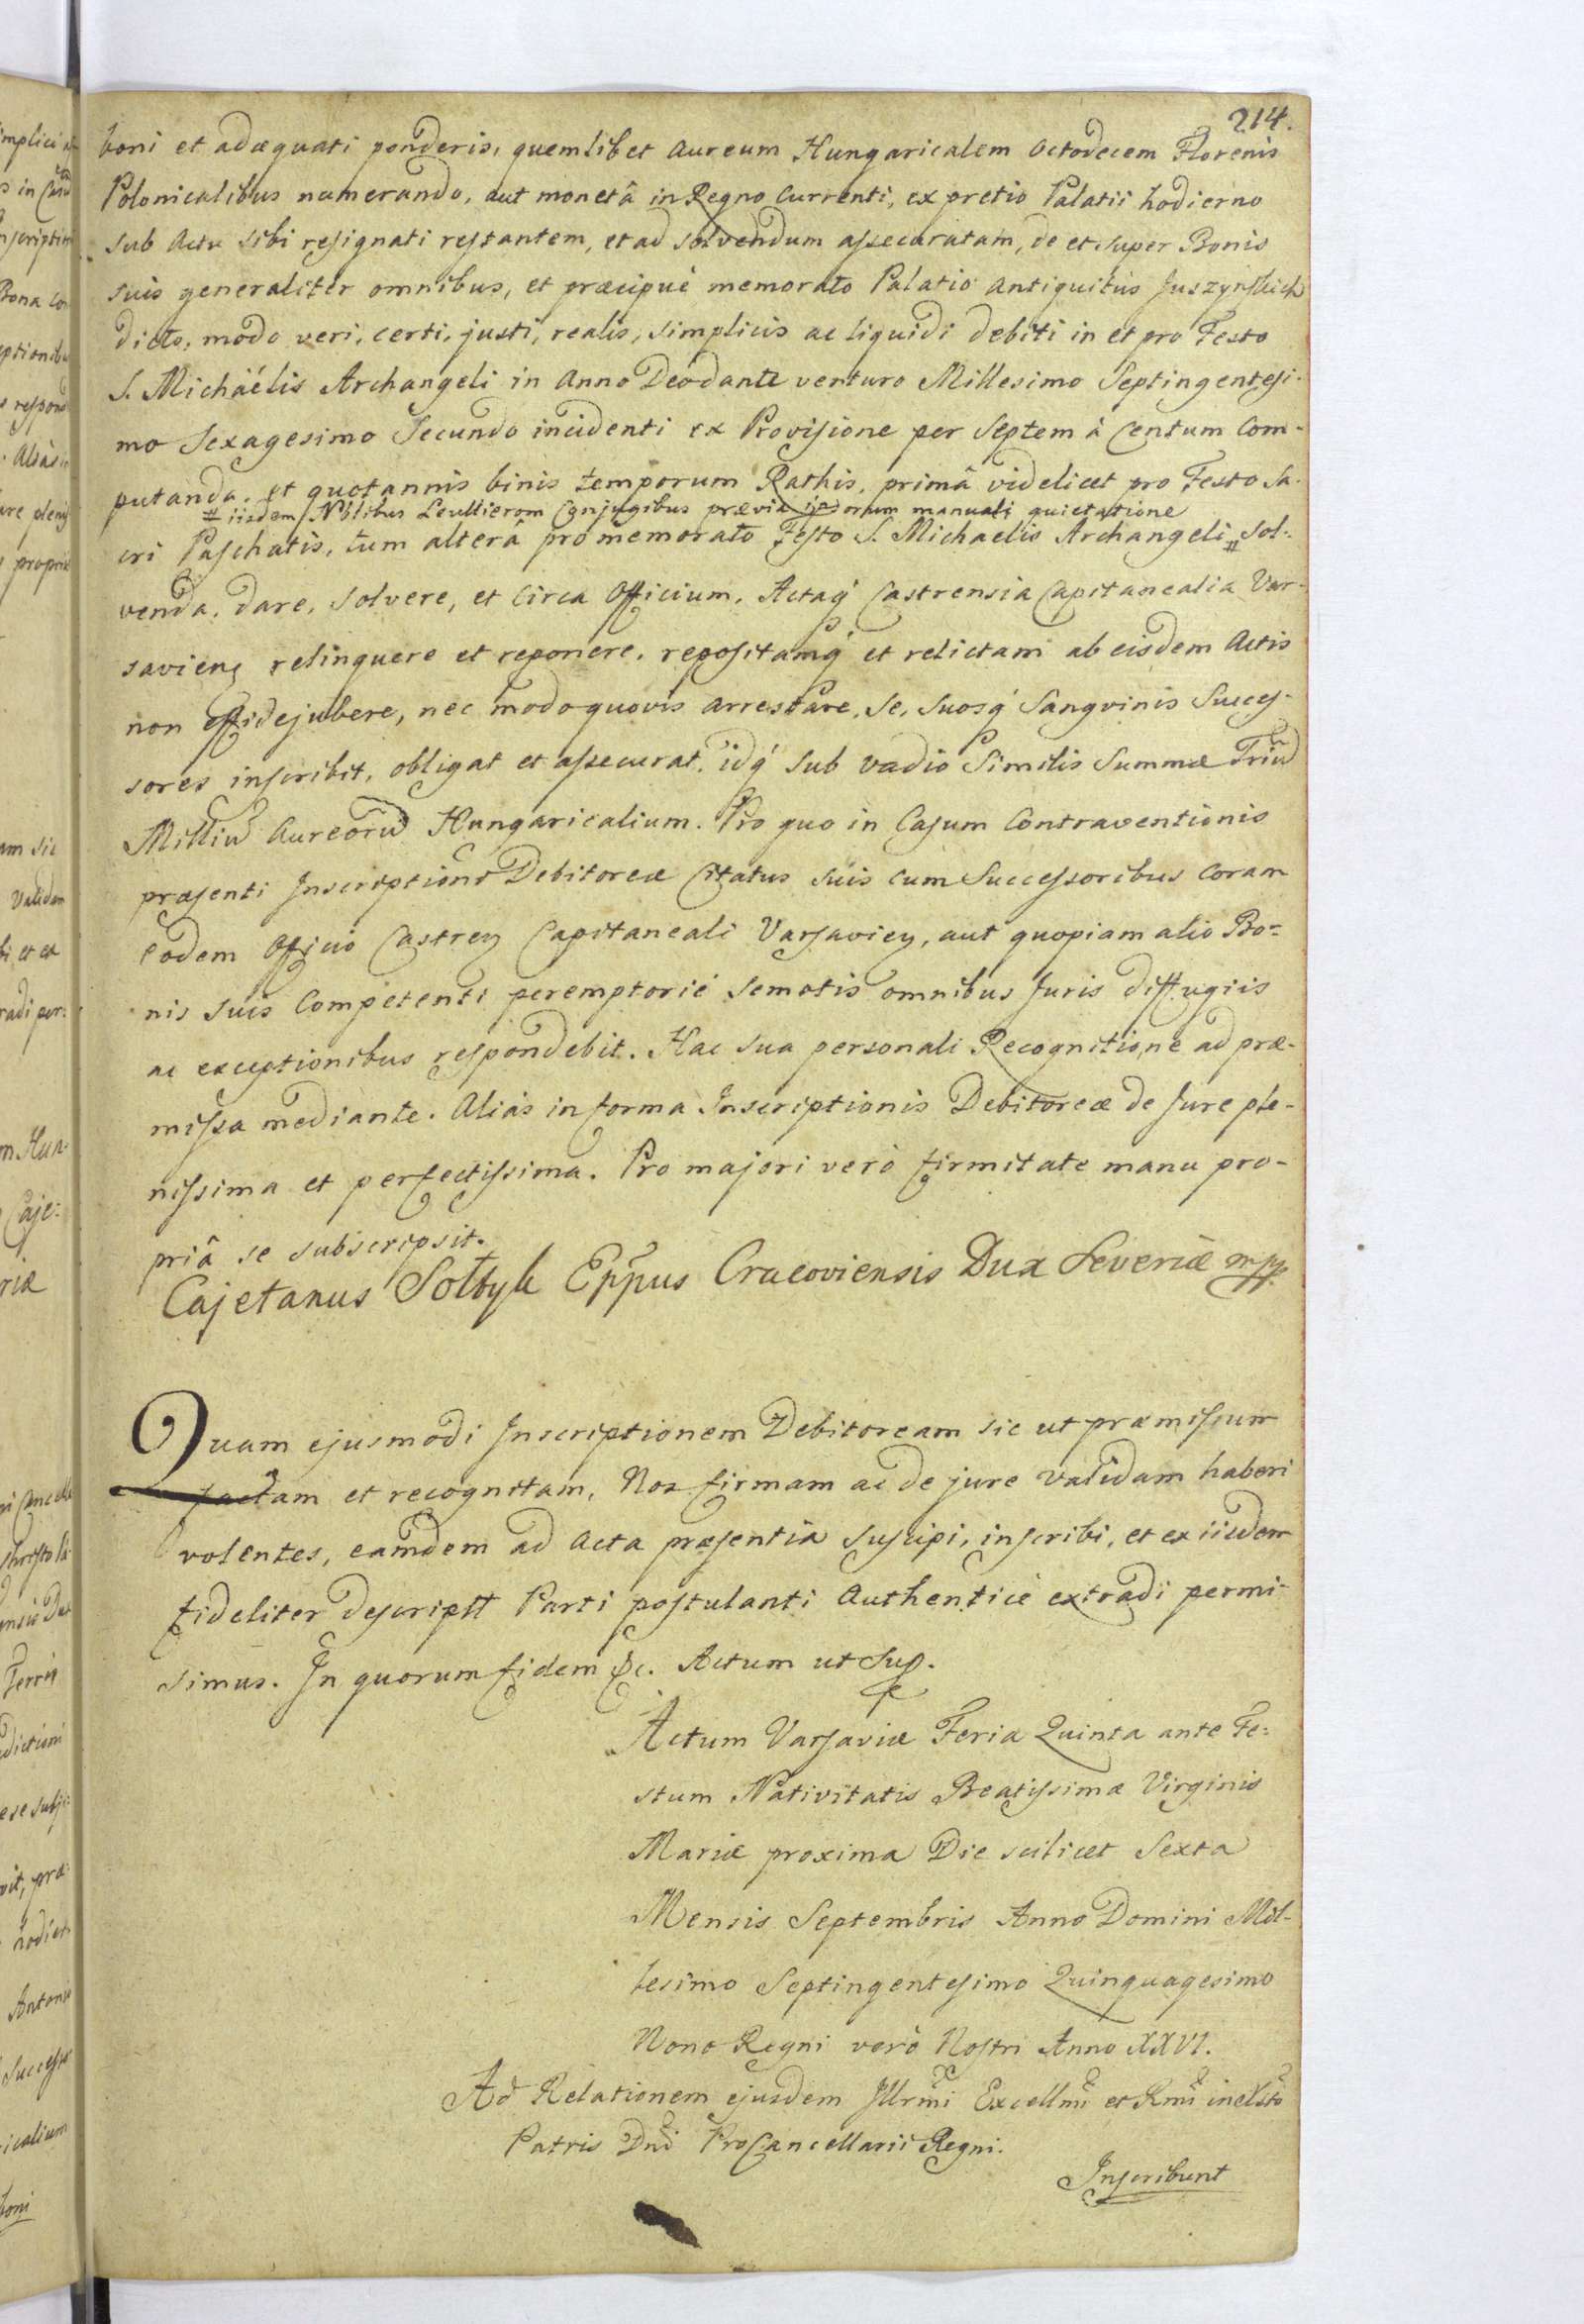 214.
boni et adæquati ponderis, quemlibet Aureum Hungaricalem Octodecem Florenis
Polonicalibus numerando, aut monetâ in Regno Currenti, ex pretio Palatii hodierno
sub Actu sibi resignati restantem, et ad solvendum assecuratam, de et super Bonis
suis generaliter omnibus, et præcipuè memorato Palatio antiquitùs Juszynskich
dicto, modo veri, certi, justi, realis, simplicis ac liquidi debiti in et pro Festo
S. Michaëlis Archangeli in Anno Deodante venturo Millesimo Septingentesi-
mo Sexagesimo Secundo incidenti ex Provisione per Septem à Centum Com-
putanda, et quotannis binis temporum Rathis, primâ videlicet pro Festo Sa-
# iisdem Nblibus Leullierom Conjugibus prævia ipsorum manuali quietatione
cri Paschatis, tum alterâ pro memorato Festo S. Michaelis Archangeli # sol-
venda, dare, solvere, et Circa Officium, Actaq́ Castrensia Capitanealia Var-
savien relinquere et reponere, repositamq́ et relictam ab eisdem Actis
non effidejubere, nec modoquovis arrestare, se, suosq́ Sangvinis Succes-
sores inscribit, obligat et assecurat, idq́ sub vadio Similis Summæ Triũ
Milliũ Aureorũ Hungaricalium. Pro quo in Casum Contraventionis
præsenti Inscriptioni Debitoreæ Citatus suis cum Successoribus coram
eodem Officio Castren Capitaneali Varsavien, aut quopiam alio Bo-
nis suis Competenti peremptoriè semotis omnibus Juris diffugiis
ac exceptionibus respondebit. Hac sua personali Recognitione ad præ-
missa mediante. Aliàs in forma Inscriptionis Debitoreæ de Jure ple-
nissima et perfectissima. Pro majori verò firmitate manu pro-
priâ se subscripsit.
Cajetanus Sołtyk Eppus Cracoviensis Dux Severiæ mpp.
Quam ejusmodi Inscriptionem Debitoream sic ut præmissum
factam et recognitam, Nos firmam ac de jure validam haberi
volentes, eamdem ad Acta præsentia suscipi, inscribi, et ex iisdem
fideliter descriptt Parti postulanti Authenticè extradi permi-
simus. In quorum fidem &c. Actum ut sup.
Actum Varsaviæ Feria Quinta ante Fe-
stum Nativitatis Beatissimæ Virginis
Mariæ proxima Die scilicet Sexta
Mensis Septembris Anno Domini Mil-
lesimo Septingentesimo Quinquagesimo
Nono Regni verò Nostri Anno XXVI.
Ad Relationem ejusdem Illrmi Excellmi et Rmi in Xsto
Patris Dni ProCancellarii Regni.
Inscribunt